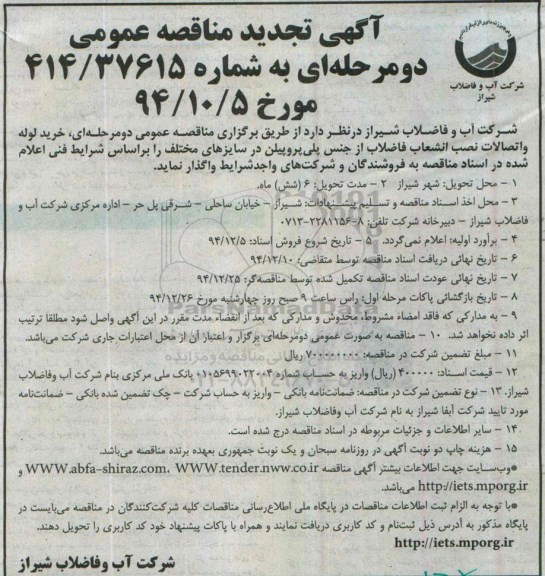 آگهی تجدید مناقصه عمومی
دومرحله‌ای به شماره ۴۱۴/۳۷۶۱۵
مورخ ۹۴/۱۰/۵
شرکت آب و فاضلاب
شیراز
شرکت آب و فاضلاب شیراز درنظر دارد از طریق برگزاری مناقصه عمومی دومرحله‌ای، خرید لوله
واتصالات نصب انشعاب فاضلاب از جنس پلی‌پروپیلن در سایزهای مختلف را براساس شرایط فنی اعلام
شده در اسناد مناقصه به فروشندگان و شرکت‌های واجدشرایط واگذار نماید.
۱ - محل تحویل: شهر شیراز ۲ - مدت تحویل: ۶ (شش) ماه.
۳ - محل اخذ اسناد مناقصه و تسلیم پیشنهادات: شیراز - خیابان ساحلی - شرقی پل حر - اداره مرکزی شرکت آب و
فاضلاب شیراز - دبیرخانه شرکت تلفن: ۸-۲۲۸۱۱۵۶-۰۷۱۳
۴ - برآورد اولیه: اعلام نمی‌گردد. ۵ - تاریخ شروع فروش اسناد: ۹۴/۱۲/۵
۶ - تاریخ نهائی دریافت اسناد مناقصه توسط متقاضی: ۹۴/۱۲/۱۰
۷ - تاریخ نهائی عودت اسناد مناقصه تکمیل شده توسط مناقصه‌گر: ۹۴/۱۲/۲۵
۸ - تاریخ بازگشائی پاکات مرحله اول: راس ساعت ۹ صبح روز چهارشنبه مورخ ۹۴/۱۲/۲۶
۹ - به مدارکی که فاقد امضاء مشروط، مخدوش و مدارکی که بعد از انقضاء مدت مقرر در این آگهی واصل شود مطلقا ترتیب
اثر داده نخواهد شد. ۱۰ - مناقصه به صورت عمومی دومرحله‌ای برگزار و اعتبار آن از محل اعتبارات جاری شرکت می‌باشد.
۱۱ - مبلغ تضمین شرکت در مناقصه: ۷۰۰۰۰۰۰۰۰ ریال
۱۲ - قیمت اسناد: ۴۰۰۰۰۰ (ریال) واریز به حساب شماره ۰۱۰۵۶۹۹۰۲۲۰۰۴ بانک ملی مرکزی بنام شرکت آب وفاضلاب
شیراز. ۱۳ - نوع تضمین شرکت در مناقصه: ضمانت‌نامه بانکی - واریز به حساب شرکت - چک تضمین شده بانکی - ضمانت‌نامه
مورد تایید شرکت آبفا شیراز به نام شرکت آب وفاضلاب شیراز.
۱۴ - سایر اطلاعات و جزئیات مربوطه در اسناد مناقصه درج شده است.
۱۵ - هزینه چاپ دو نوبت آگهی در روزنامه سبحان و یک نوبت جمهوری بعهده برنده مناقصه می‌باشد.
●وب‌سایت جهت اطلاعات بیشتر آگهی مناقصه WWW.abfa-shiraz.com، WWW.tender.nww.co.ir و
http://iets.mporg.ir می‌باشد.
●با توجه به الزام ثبت اطلاعات مناقصات در پایگاه ملی اطلاع‌رسانی مناقصات کلیه شرکت‌کنندگان در مناقصه می‌بایست در
پایگاه مذکور به آدرس ذیل ثبت‌نام و کد کاربری دریافت نمایند و همراه با پاکات پیشنهاد خود کد کاربری را تحویل دهند.
http://iets.mporg.ir
شرکت آب وفاضلاب شیراز